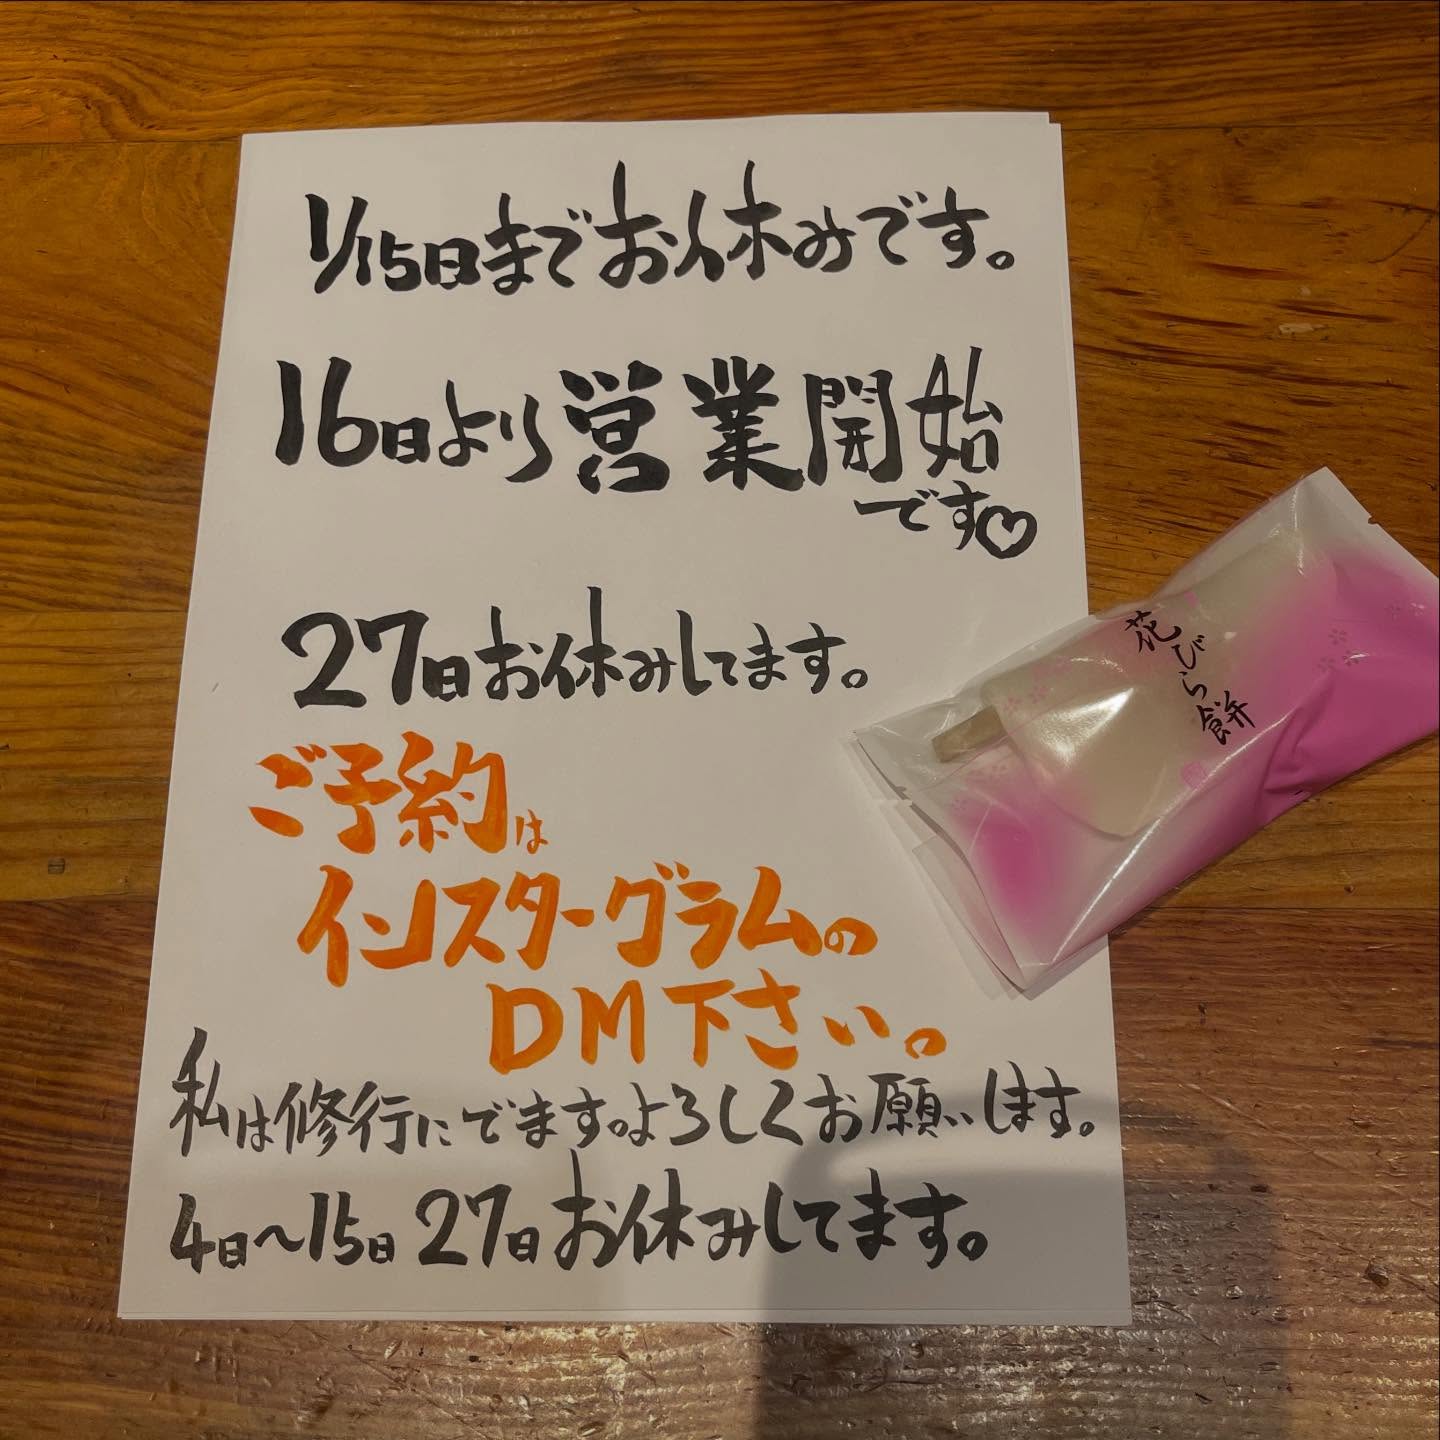 1/15日までお休みです。
16日より営業開始
です♡
27日お休みしてます。
ご予約は
インスターグラムの
DM下さい。
私は修行にでます。よろしくお願いします。
4日〜15日 27日お休みしてます。
花びら餅